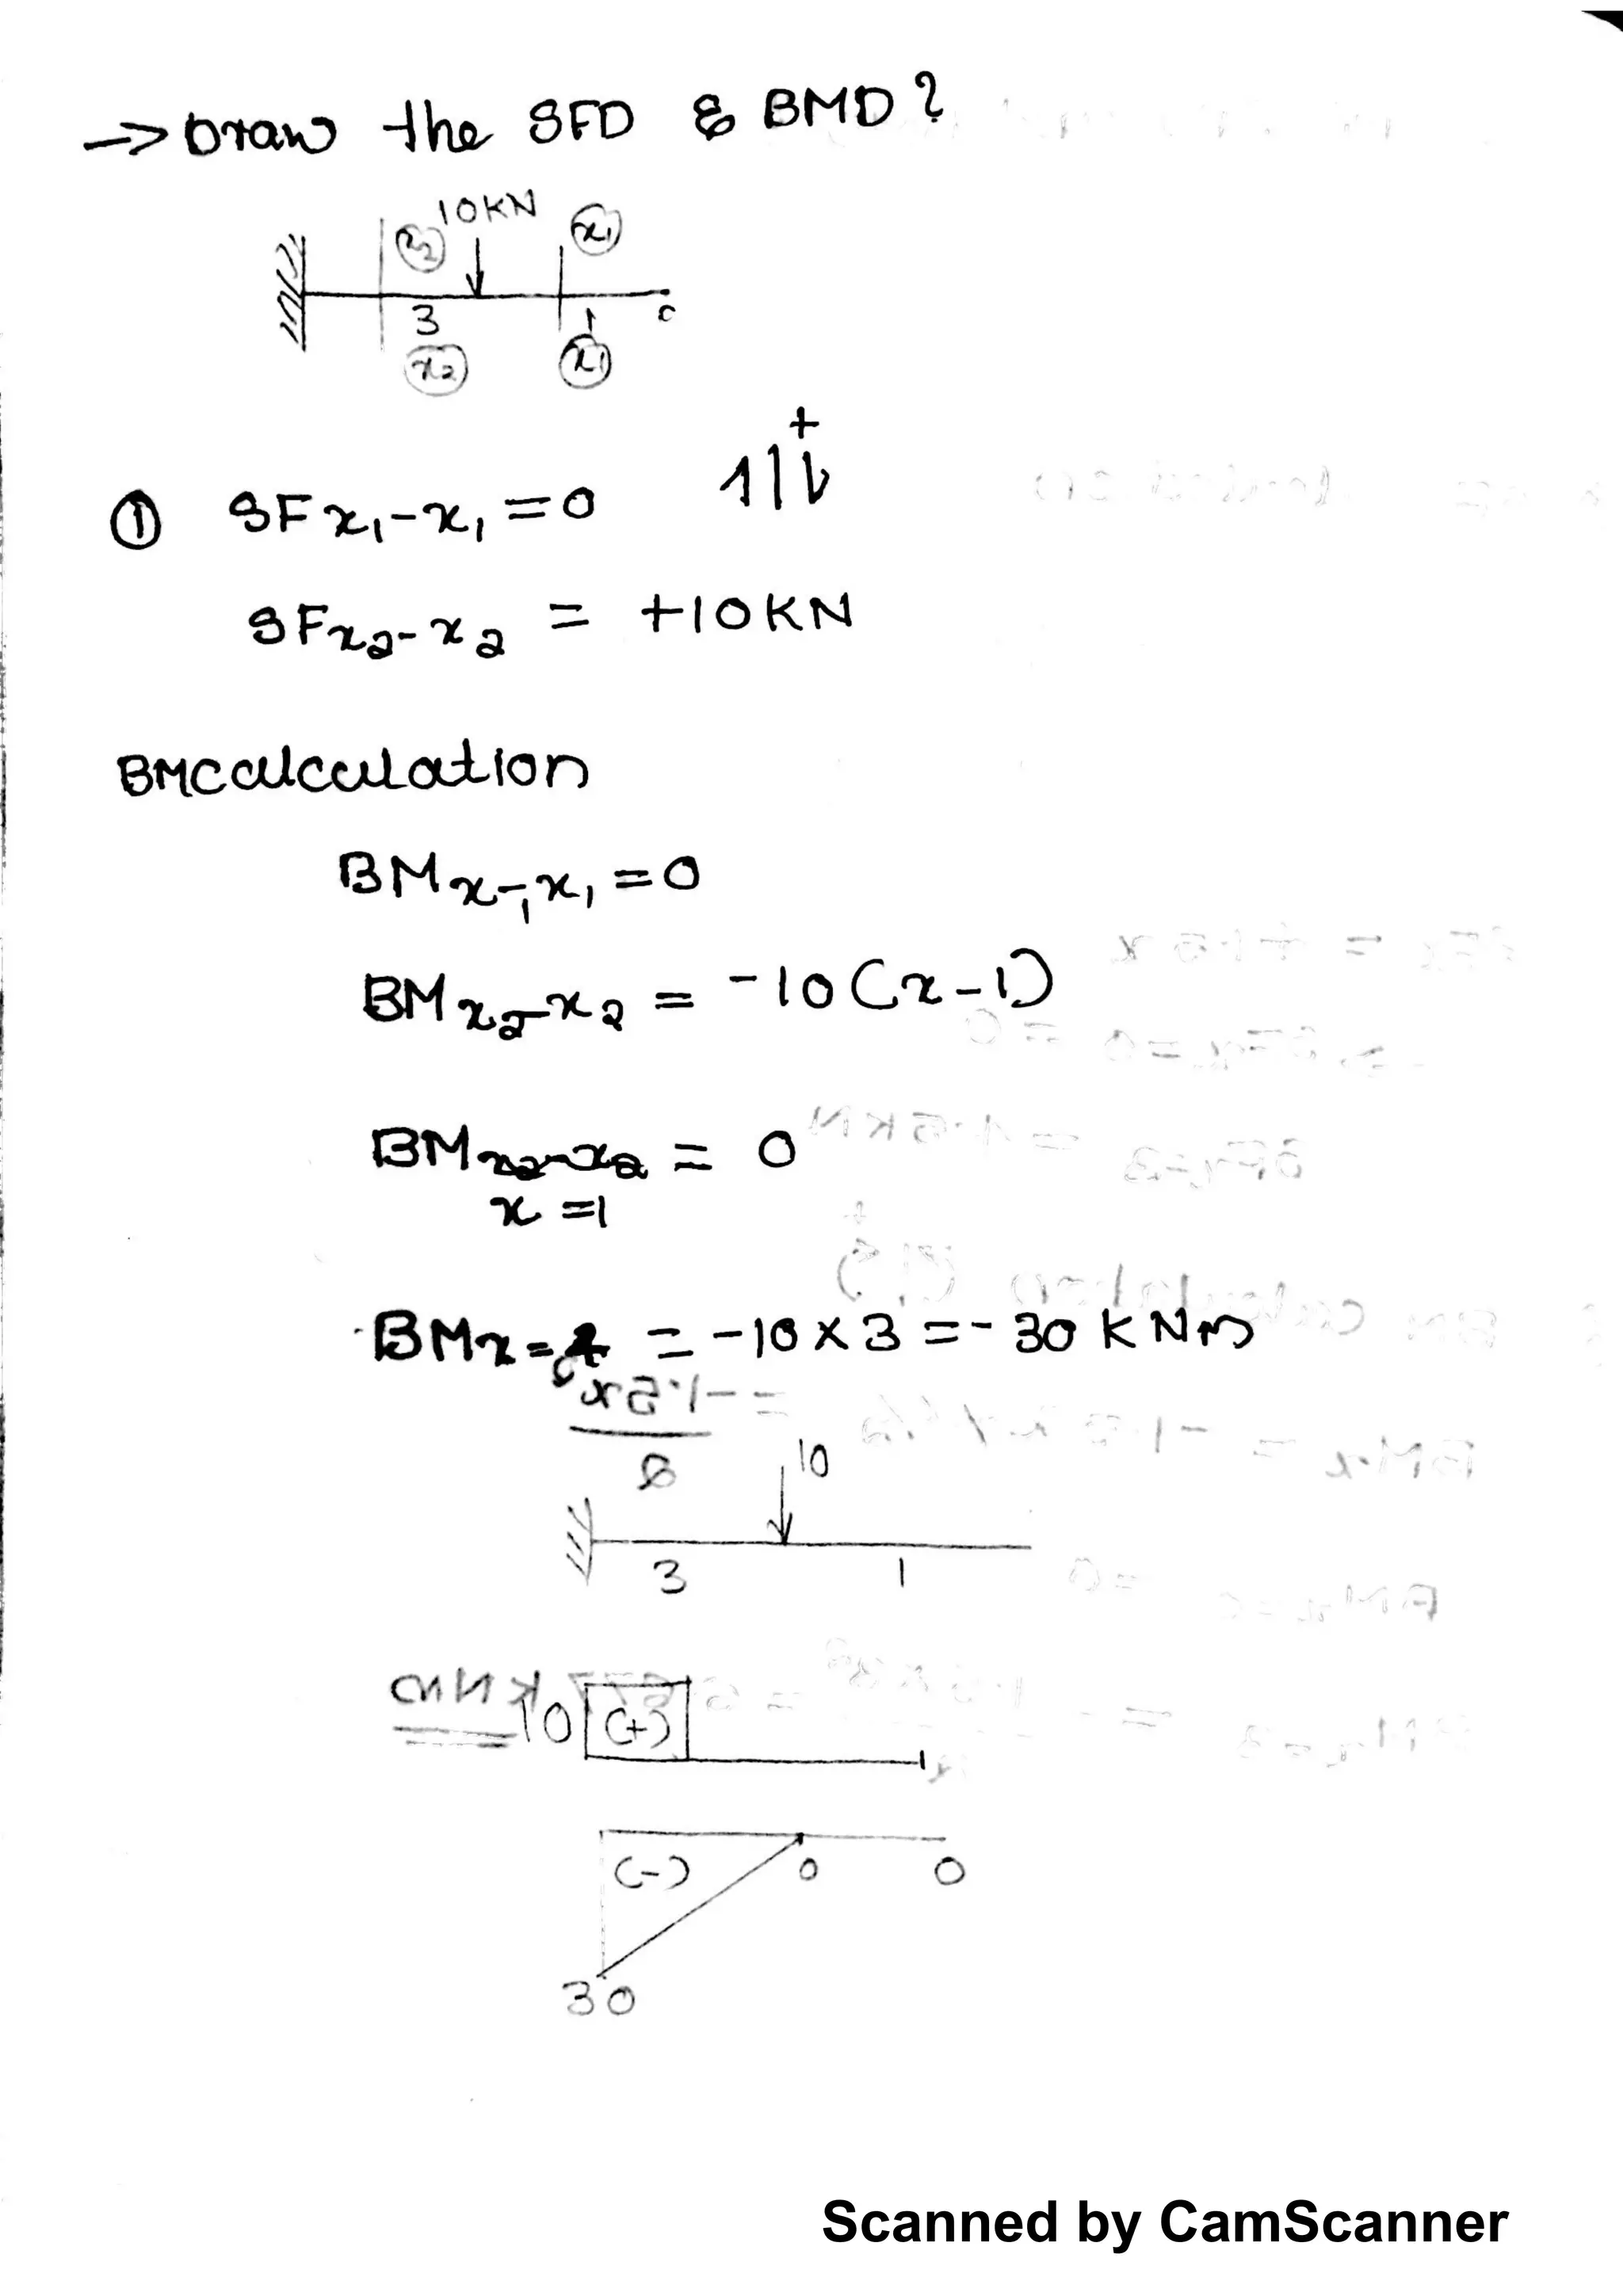 → Draw the SFD & BMD?
10KN
x₂ x₁
3 1
x₂ x₁
+
① SF x₁-x₁ = 0 ↑|↓
SF x₂-x₂ = +10KN
BM calculation
BM x₁-x₁ = 0
BM x₂-x₂ = -10(x-1)
BM x₂-x₂ = 0
x=1
BM x=4 = -10×3 = -30 KNm
10
3 1
10 (+)
(-) 0 0
30
Scanned by CamScanner